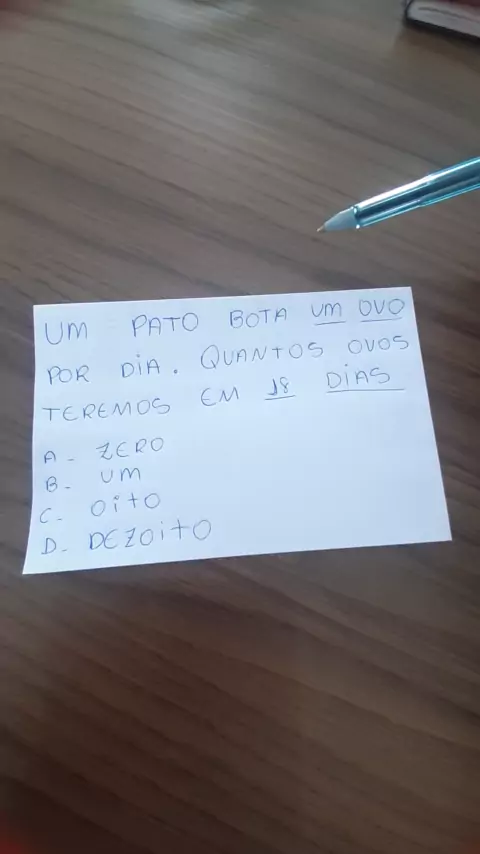 UM PATO BOTA UM OVO
POR DIA. QUANTOS OVOS
TEREMOS EM 18 DIAS
A - ZERO
B - UM
C - OITO
D - DEZOITO